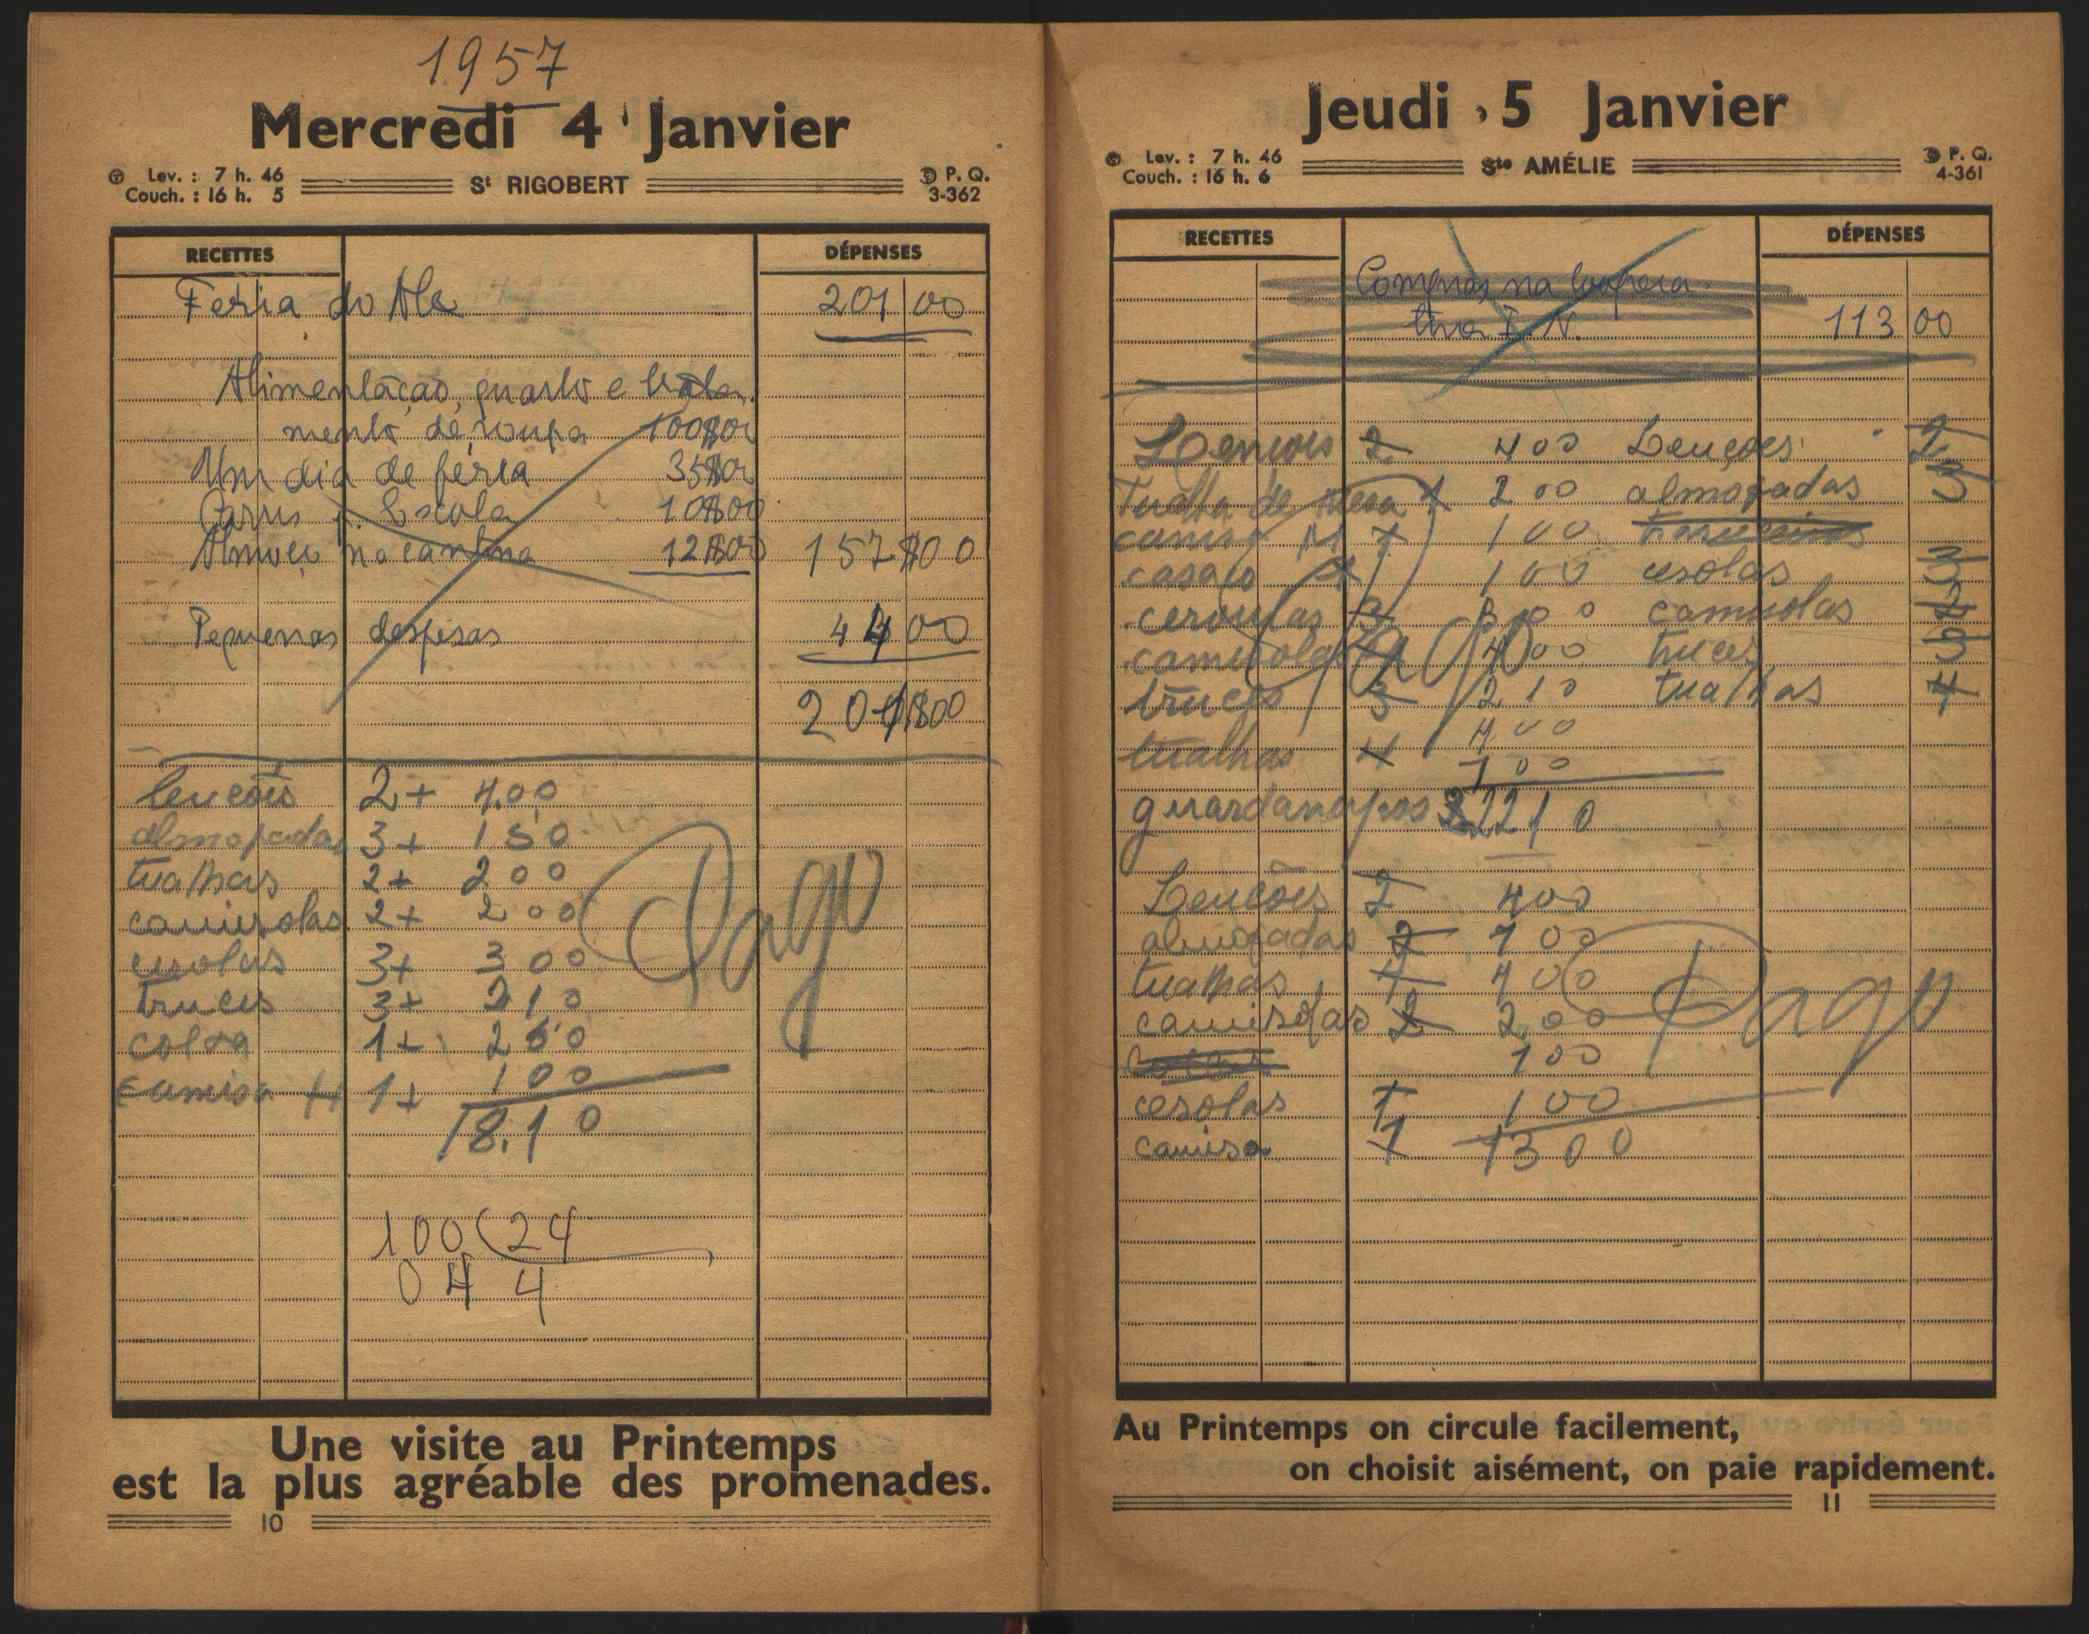 1957
Mercredi 4 Janvier
Lev. : 7 h. 46
Couch. : 16 h. 5
St RIGOBERT
P. Q.
3-362
RECETTES DÉPENSES
Feria do 201 00
Alimentação, quarto e trata
mento de roupa 100$00
Um dia de féria 35$00
Carris p. Escola 10$00
Almoço na cantina 12$00 157$00
Pequenas despesas 44 00
201$00
lencois 2+ 4.00
almofadas 3+ 150
tualhas 2+ 200
camisolas 2+ 200
3+ 300
truces 3+ 210
1+
camisa H 1+ 100
18.10
Pago
100 24
04 4
Une visite au Printemps
est la plus agréable des promenades.
10
Jeudi 5 Janvier
Lev. : 7 h. 46
Couch. : 16 h. 6
Ste AMÉLIE
P. Q.
4-361
RECETTES DÉPENSES
Compras na coopera
tiva I. N. 113 00
Lençois 2 400 Lençoes 2
Tualha de mesa 1 200 almofadas 3
camisa H 1 100
casaco 1 100 3
ceroulas 3 300 camisolas 2
camisolas 400 truces 3
truces 3 210 tualhas 4
400
tualhas 4 100
guardanapos 2210
Pago
Lencões 2 400
almofadas 2 100
tualhas 4 400
camisolas 2 200
100
1 100
camisa 1 1300
Pago
Au Printemps on circule facilement,
on choisit aisément, on paie rapidement.
11